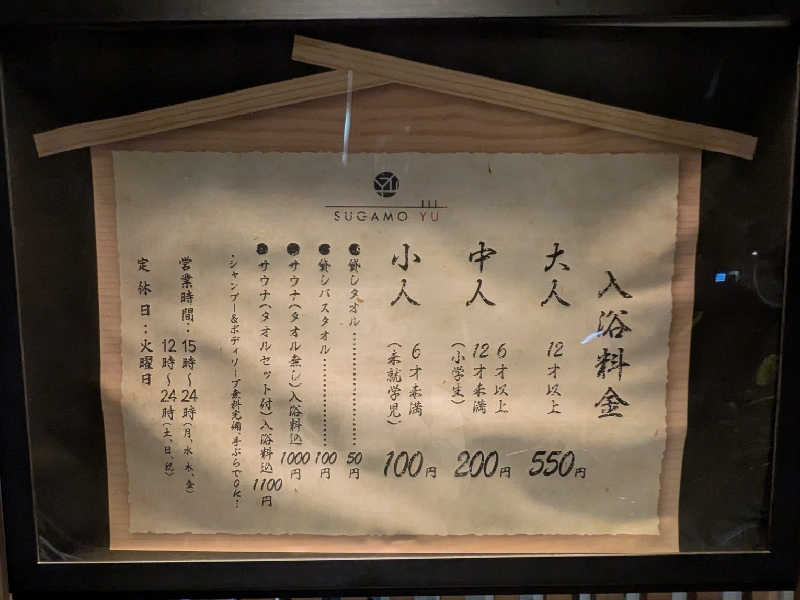 SUGAMO YU
入浴料金
大人 12才以上 550円
中人 6才以上
12才未満
(小学生) 200円
小人 6才未満
(未就学児) 100円
●貸しタオル…………………50円
●貸しバスタオル……………100円
●サウナ(タオル無し)入浴料込 1000円
●サウナ(タオルセット付)入浴料込 1100円
・シャンプー&ボディソープ無料完備 手ぶらでOK…
営業時間:15時~24時(月、水、木、金)
12時~24時(土、日、祝)
定休日:火曜日